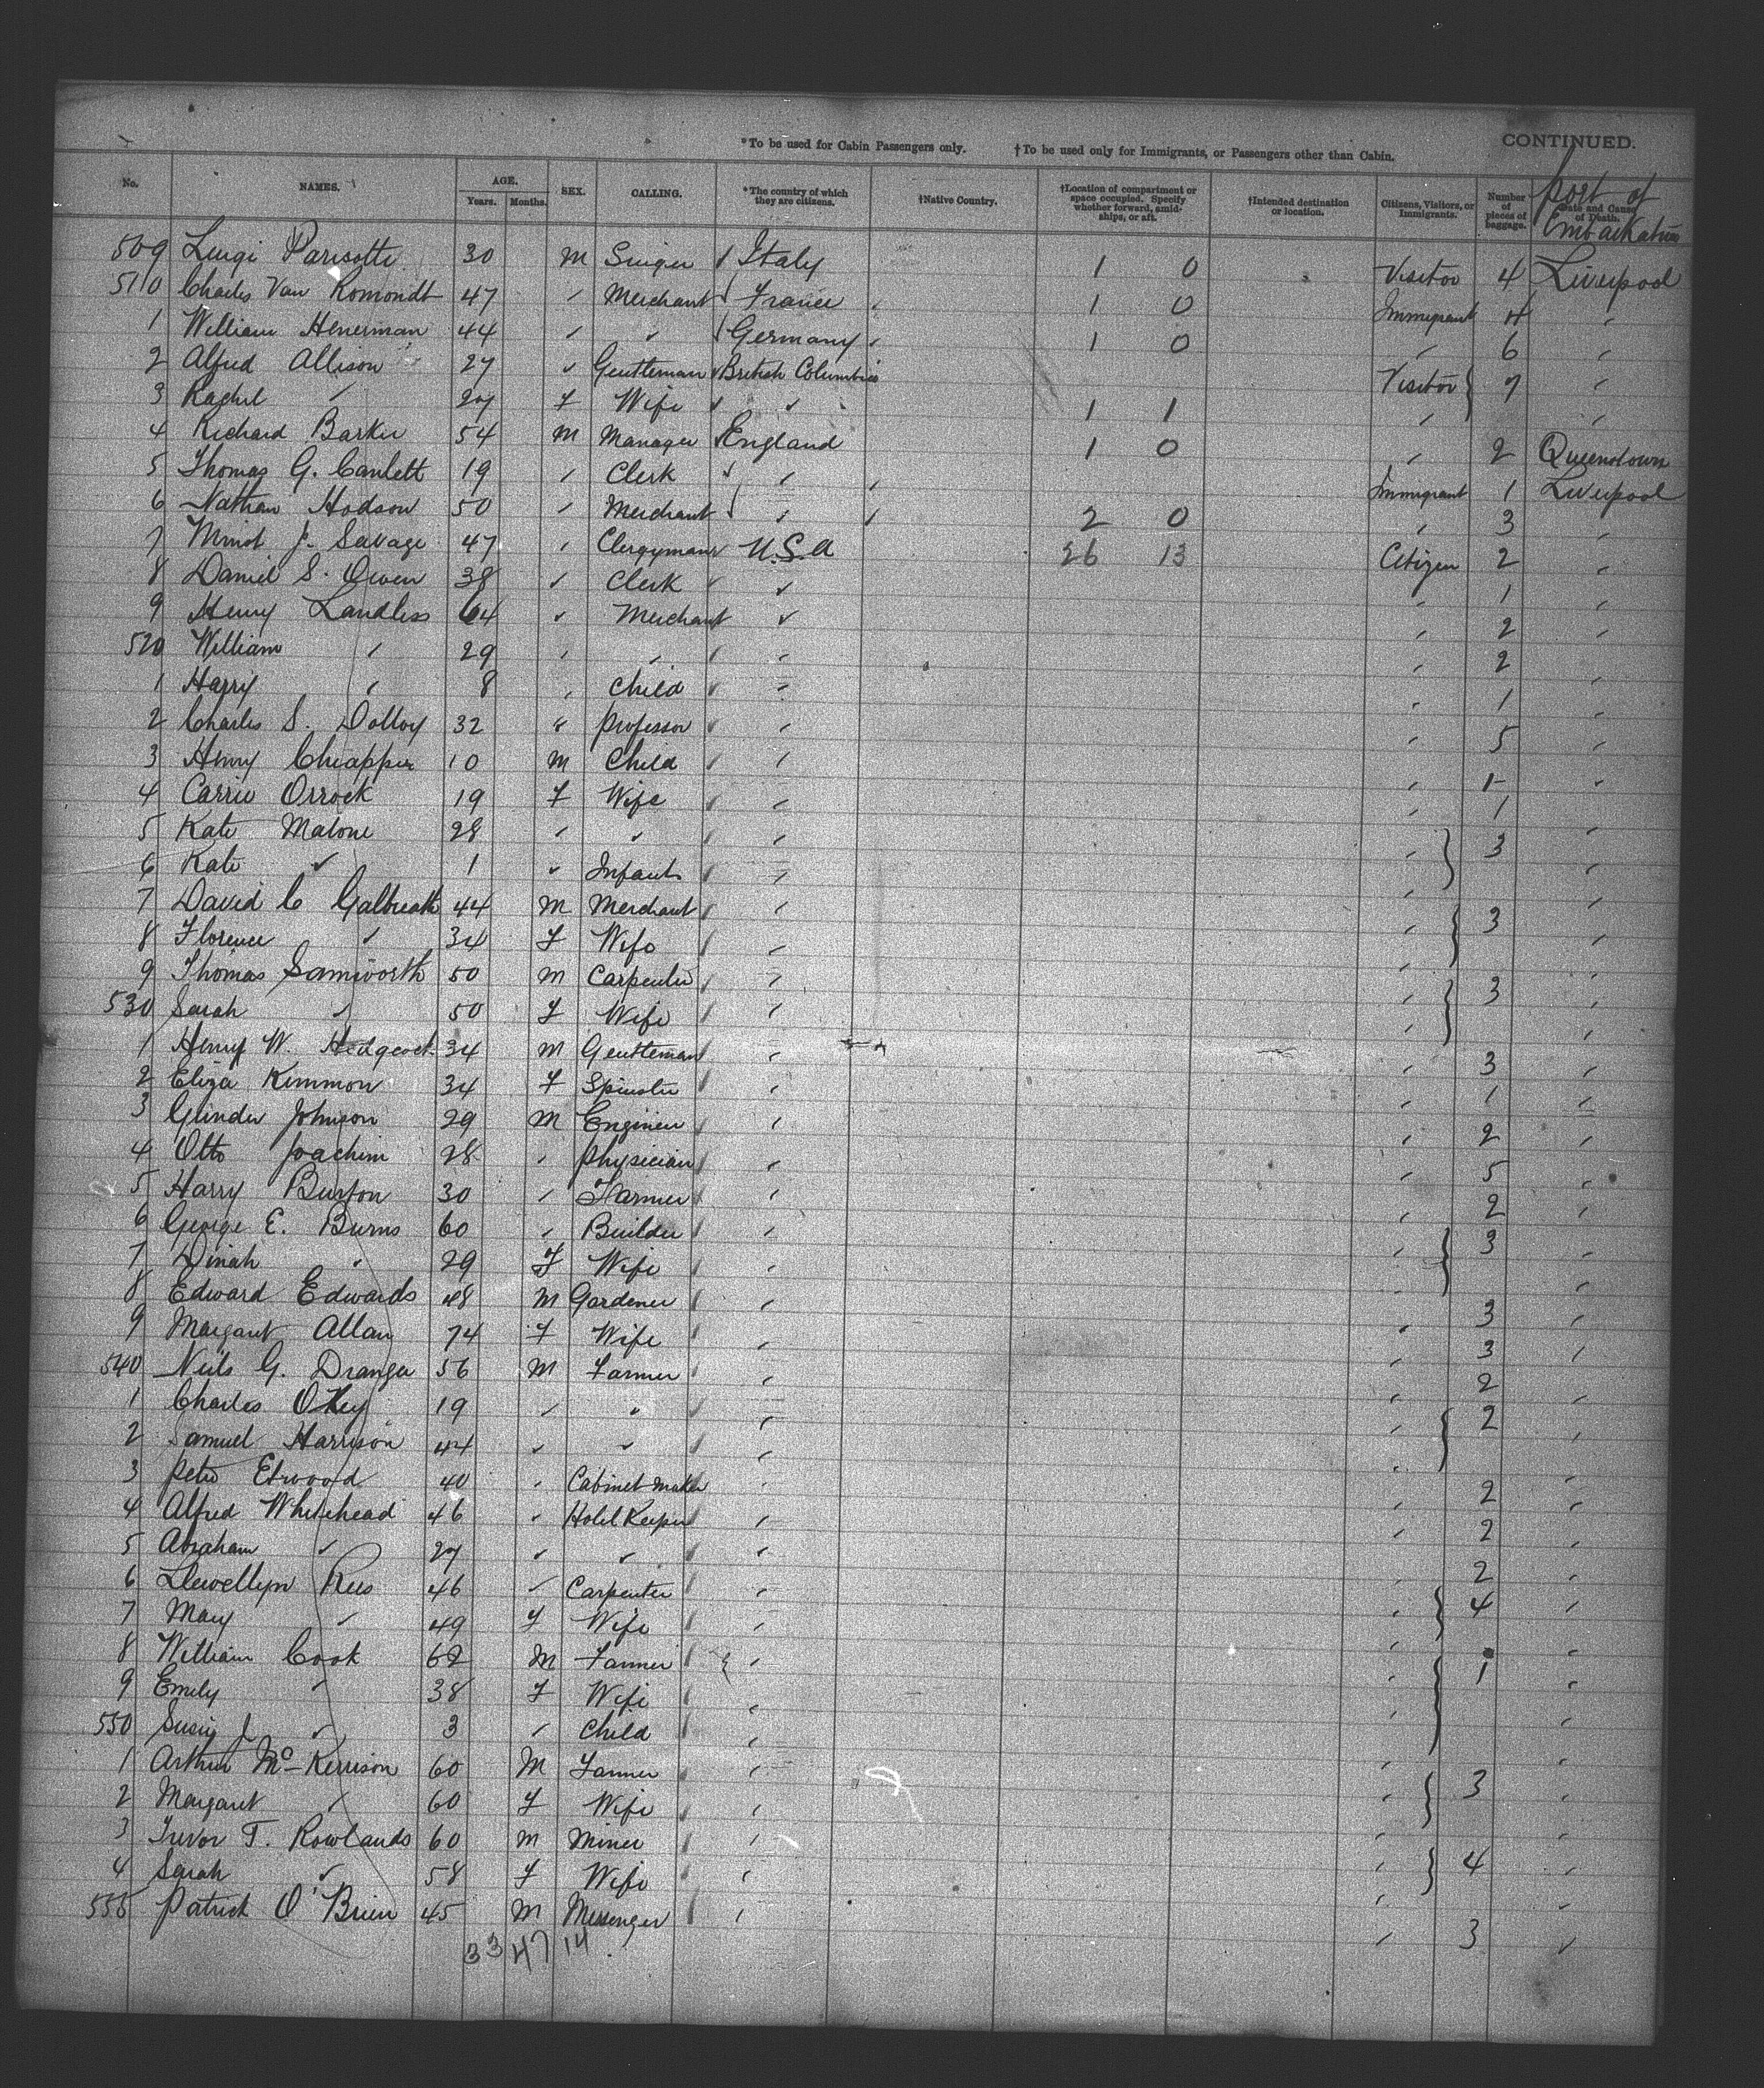 CONTINUED.
*To be used for Cabin Passengers only. †To be used only for Immigrants, or Passengers other than Cabin.
No. NAMES. AGE. Years. Months. SEX. CALLING. *The country of which they are citizens. †Native Country. †Location of compartment or space occupied. Specify whether forward, amidships, or aft. †Intended destination or location. Citizens, Visitors, or Immigrants. Number of pieces of baggage. Date and Cause of Death. Port of Embarkation
509 Luigi Parisotti 30 M Singer Italy 1 0 Visitor 4 Liverpool
510 Charles Van Romondt 47 " Merchant France 1 0 Immigrant 4 "
1 William Henerman 44 " " Germany 1 0 " 6 "
2 Alfred Allison 27 " Gentleman British Columbia Visitor } 7 "
3 Rachel " 27 F Wife " 1 1 " "
4 Richard Barker 54 M Manager England 1 0 " 2 Queenstown
5 Thomas G. 19 " Clerk " Immigrant 1 Liverpool
6 Nathan Hodson 50 " Merchant " 2 0 " 3 "
7 Minot J. Savage 47 " Clergyman U.S.A 26 13 Citizen 2 "
8 Daniel S. Owen 38 " Clerk " " 1 "
9 Henry Landless 64 " Merchant " " 2 "
520 William " 29 " " " " 2 "
1 Harry " 8 " Child " " 1 "
2 Charles S. Dolley 32 " Professor " " 5 "
3 Henry 10 M Child " " 1 "
4 Carrie Orrock 19 F Wife " " 1 "
5 Kate Malone 28 " " " " } 3 "
6 Kate " 1 " Infant " " "
7 David C Galbreath 44 M Merchant " " } 3 "
8 Florence " 34 F Wife " " "
9 Thomas Samworth 50 M Carpenter " " } 3 "
530 Sarah " 50 F Wife " " "
1 Henry W. Hedgcock 34 M Gentleman " " 3 "
2 Eliza Kimmon 34 F Spinster " " 1 "
3 Johnson 29 M Engineer " " 2 "
4 Otto Joachim 28 " Physician " " 5 "
5 Harry Burton 30 " Farmer " " 2 "
6 George E. Burns 60 " Builder " " } 3 "
7 Dinah " 29 F Wife " " "
8 Edward Edwards 48 M Gardener " " 3 "
9 Margaret Allan 74 F Wife " " 3 "
540 Neils G. Dranga 56 M Farmer " " 2 "
1 Charles OKey 19 " " " " } 2 "
2 Samuel Harrison 44 " " " " "
3 Peter 40 " Cabinet maker " " 2 "
4 Alfred Whitehead 46 " Hotel Keeper " " 2 "
5 Abraham " 27 " " " " 2 "
6 Llewellyn Rees 46 " Carpenter " " } 4 "
7 Mary " 49 F Wife " " "
8 William Cook 62 M Farmer " " } 1 "
9 Emily " 38 F Wife " "
550 Susie J " 3 " Child " "
1 Arthur McKerrison 60 M Farmer " " } 3 "
2 Margaret " 60 F Wife " " "
3 Trevor T. Rowlands 60 M Miner " " } 4 "
4 Sarah " 58 F Wife " " "
555 Patrick O'Brien 45 M Messenger " " 3 "
33 47 14